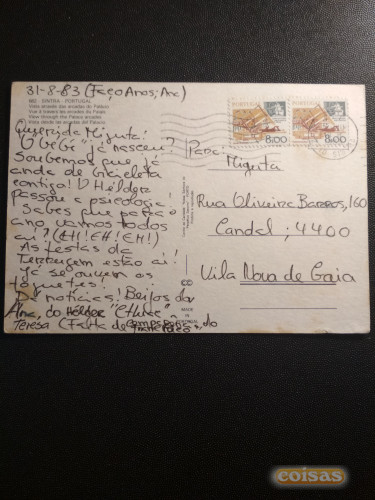 31-8-83 (Faço Anos; Ana)
SINTRA - PORTUGAL
Vista através das arcadas do Palácio
Vue à travers les arcades du Palais
View through the Palace arcades
Vista desde las arcadas del Palacio
PORTUGAL
8.00
PORTUGAL
8.00
Querida Miguta!
O Bébé já nasceu?
Soubemos que já
anda de bicicleta
contigo! O Hélder
passou a psicologia.
Sabes que para o
ano vamos todos
aí? (EH! EH! EH!)
As festas da
estão aí!
Já se ouvem os
foguetes!
Dá notícias! Beijos da
Ana, do Hélder
Teresa (Falta de
Para:
Miguta
Rua Oliveira Barros, 160
Candal; 4400
Vila Nova de Gaia
MADE
IN
PORTUGAL
coisas